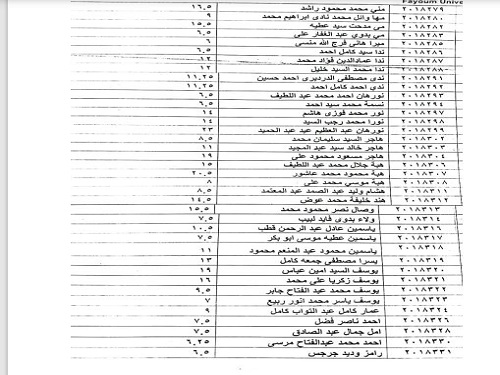 Fayoum Unive
٢٠١٨٢٧٩ مني محمد محمود راشد ١٦.٥
٢٠١٨٢٨٠ مها وائل محمد نادى ابراهيم محمد ٩
٢٠١٨٢٨٢ مي مدحت سيد عطيه ١٥.٥
٢٠١٨٢٨٣ مي بدوي عبد الغفار على ٦.٥
٢٠١٨٢٨٥ ميرا هاني فرج الله منسى ٦
٢٠١٨٢٨٦ ندا سيد كامل احمد ٦.٥
٢٠١٨٢٨٧ ندا عمادالدين فؤاد محمد ١٢
٢٠١٨٢٨٨ ندا محمد السيد خليل ١٢
٢٠١٨٢٩١ ندى مصطفى الدرديرى احمد حسين ١١,٢٥
٢٠١٨٢٩٢ ندى احمد كامل احمد ١١,٢٥
٢٠١٨٢٩٣ نورهان احمد محمد عبد اللطيف ٦.٥
٢٠١٨٢٩٤ نسمة محمد سيد احمد ٦.٥
٢٠١٨٢٩٧ نور محمد فوزى هاشم ١٤
٢٠١٨٢٩٨ نورا محمد رجب السيد ١٤
٢٠١٨٢٩٩ نورهان عبد العظيم عبد عبد الحميد ٢٣
٢٠١٨٣٠٢ هاجر السيد سليمان محمد ٨,٥
٢٠١٨٣٠٣ هاجر خالد سيد عبد المجيد ١١
٢٠١٨٣٠٤ هاجر مسعود محمود على ١٩
٢٠١٨٣٠٦ هبة جلال محمد عبد اللطيف ١٥
٢٠١٨٣٠٧ هبة محمود محمد عاشور ٢٠.٥
٢٠١٨٣٠٨ هبة موسي محمد على ٨
٢٠١٨٣١١ هشام وليد عبد الصمد عبد المعتمد ٨,٥
٢٠١٨٣١٢ هند خليفة محمد عوض ١٤.٥
٢٠١٨٣١٣ وصال نصر محمود محمد ١٥,٥
٢٠١٨٣١٤ ولاء بدوي فايد لبيب ٧.٥
٢٠١٨٣١٦ ياسمين عادل عبد الرحمن قطب ١٠.٥
٢٠١٨٣١٧ ياسمين عطيه موسى ابو بكر ٧.٥
٢٠١٨٣١٨ ياسمين محمود عبد المنعم محمود ١١
٢٠١٨٣١٩ يسرا مصطفى جمعه كامل ١٣
٢٠١٨٣٢٠ يوسف السيد امين عباس ١٩
٢٠١٨٣٢١ يوسف زكريا على محمد ١٦
٢٠١٨٣٢٢ يوسف محمد عبد الفتاح جابر ٩.٥
٢٠١٨٣٢٣ يوسف ياسر محمد انور ربيع ٧
٢٠١٨٣٢٤ عمار كامل عبد التواب كامل ٩
٢٠١٨٣٢٦ احمد ناصر فضل ٧.٥
٢٠١٨٣٢٨ امل جمال عبد الصادق ٧.٥
٢٠١٨٣٣٠ احمد محمد عبدالفتاح مرسى ٦,٢٥
٢٠١٨٣٣١ رامز وديد جرجس ٦,٥